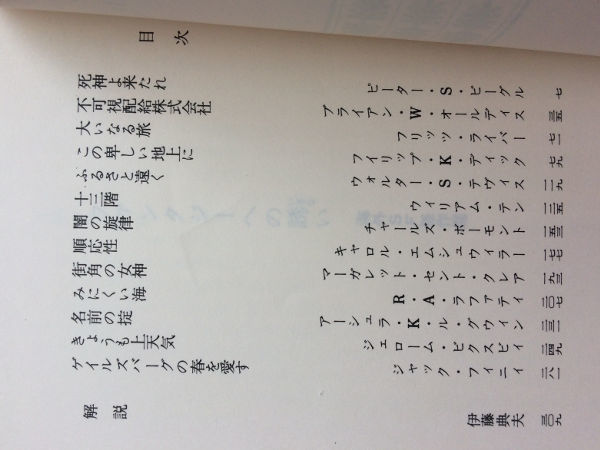 目次
死神よ来たれ ピーター・S・ビーグル 七
不可視配給株式会社 ブライアン・W・オールディス 三五
大いなる旅 フリッツ・ライバー 七一
この卑しい地上に フィリップ・K・ディック 七九
ふるさと遠く ウォルター・S・テヴィス 一一九
十三階 ウィリアム・テン 一二五
闇の旋律 チャールズ・ボーモント 一五三
順応性 キャロル・エムシュウィラー 一七七
街角の女神 マーガレット・セント・クレア 一九三
みにくい海 R・A・ラファティ 二〇七
名前の掟 アーシュラ・K・ル・グウィン 二三一
きょうも上天気 ジェローム・ビクスビイ 二四九
ゲイルズバーグの春を愛す ジャック・フィニイ 二八一
解説 伊藤典夫 三〇九